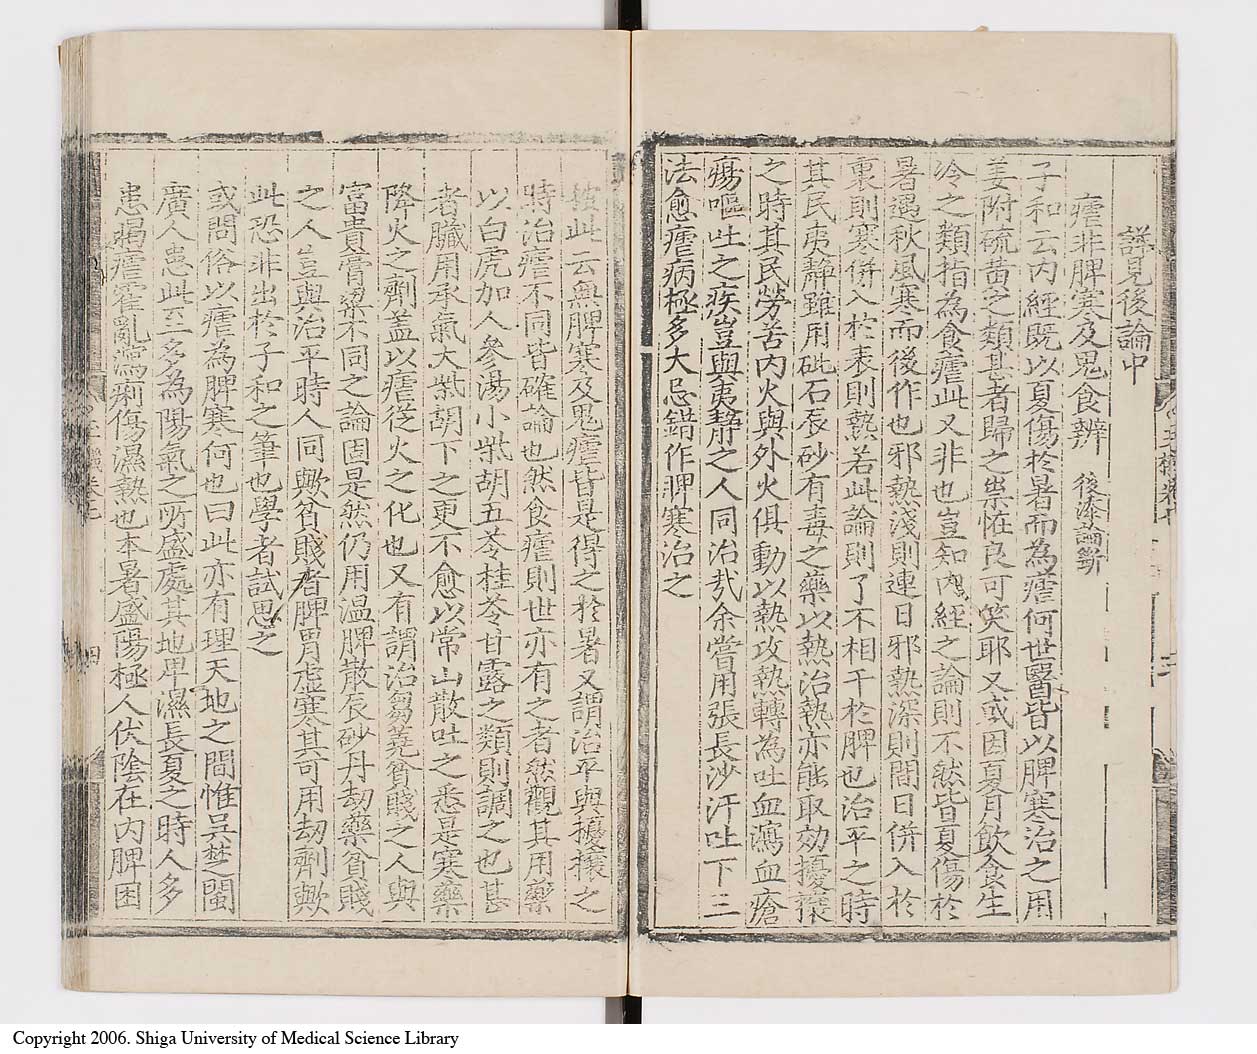 詳見後論中
瘧非脾寒及鬼食辨 後添論斷
子和云内經既以夏傷於暑而為瘧何世醫皆以脾寒治之用
姜附硫黃之類甚者歸之祟恠良可笑耶又或因夏月飲食生
冷之類指為食瘧此又非也豈知内經之論則不然皆夏傷於
暑遇秋風寒而後作也邪熱淺則連日邪熱深則間日併入於
裏則寒併入於表則熱若此論則了不相干於脾也治平之時
其民夷靜雖用砒石辰砂有毒之藥以熱治熱亦能取効擾攘
之時其民勞苦内火與外火俱動以熱攻熱轉為吐血瀉血瘡
瘍嘔吐之疾豈與夷靜之人同治㢤余嘗用張長沙汗吐下三
法愈瘧病極多大忌錯作脾寒治之
按此云無脾寒及鬼瘧皆是得之於暑又謂治平與擾攘之
時治瘧不同皆確論也然食瘧則世亦有之者然觀其用藥
以白虎加人參湯小柴胡五苓桂苓甘露之類則調之也甚
者臟用承氣大柴胡下之更不愈以常山散吐之悉是寒藥
降火之劑盖以瘧從火之化也又有謂治芻蕘貧賤之人與
富貴膏梁不同之論固是然仍用温脾散辰砂丹劫藥貧賤
之人豈與治平時人同歟貧賤者脾胃虛寒其可用劫劑歟
此恐非出於子和之筆也學者試思之
或問俗以瘧為脾寒何也曰此亦有理天地之間惟吳楚閩
廣人患此云多為陽氣之所盛處其地卑濕長夏之時人多
患暍瘧霍亂瀉痢傷濕熱也本暑盛陽極人伏陰在内脾困